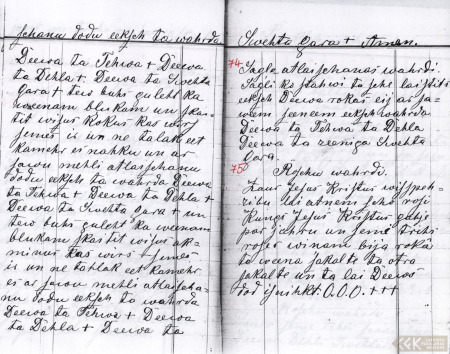 schanu dodu eeksch ta wahrda
Deewa ta Tehwa + Deewa
ta Dehla + Deewa ta Swehta
Gara + tew buhs guleht ka
weenam blukam un skai-
tit wisus kokus kas wirs
semes ir un ne talak eet
kamehr es nahku un ar
sawu mehli atlaischanu
dodu eeksch ta wahrda Deewa
ta Tehwa + Deewa ta Dehla +
Deewa ta Swehta Gara + un
tew buhs guleht ka weenam
blukam skaitit wisus ak-
minus kas wirs semes
ir un ne tahlak eet kamehr
es ar sawu mehli atlaischa-
nu dodu eeksch ta wahrda
Deewa ta Tehwa + Deewa
ta Dehla + Deewa ta
Swehta Gara + Amen.
74 Sagla atlaischanas wahrdi.
Sagli ks stahwi ta tehe laistits
eeksch Deewa rokas eij ar sa-
weem jeneem eekschwahrda
Deewa ta Tehwa ta Dehla
Deewa ta zeeniga Swehta
Gara.
75 Roschu wahrdi.
Kaur Jesus Kristus
atnem scho rosi
Kungs Jesus Kristus gahje
par jahru un semi trihs
roses winam bija rokâ
ta weena sakalte ta otra
sakalte un ta lai Deews
dod isnihkt. O.O.O. +++